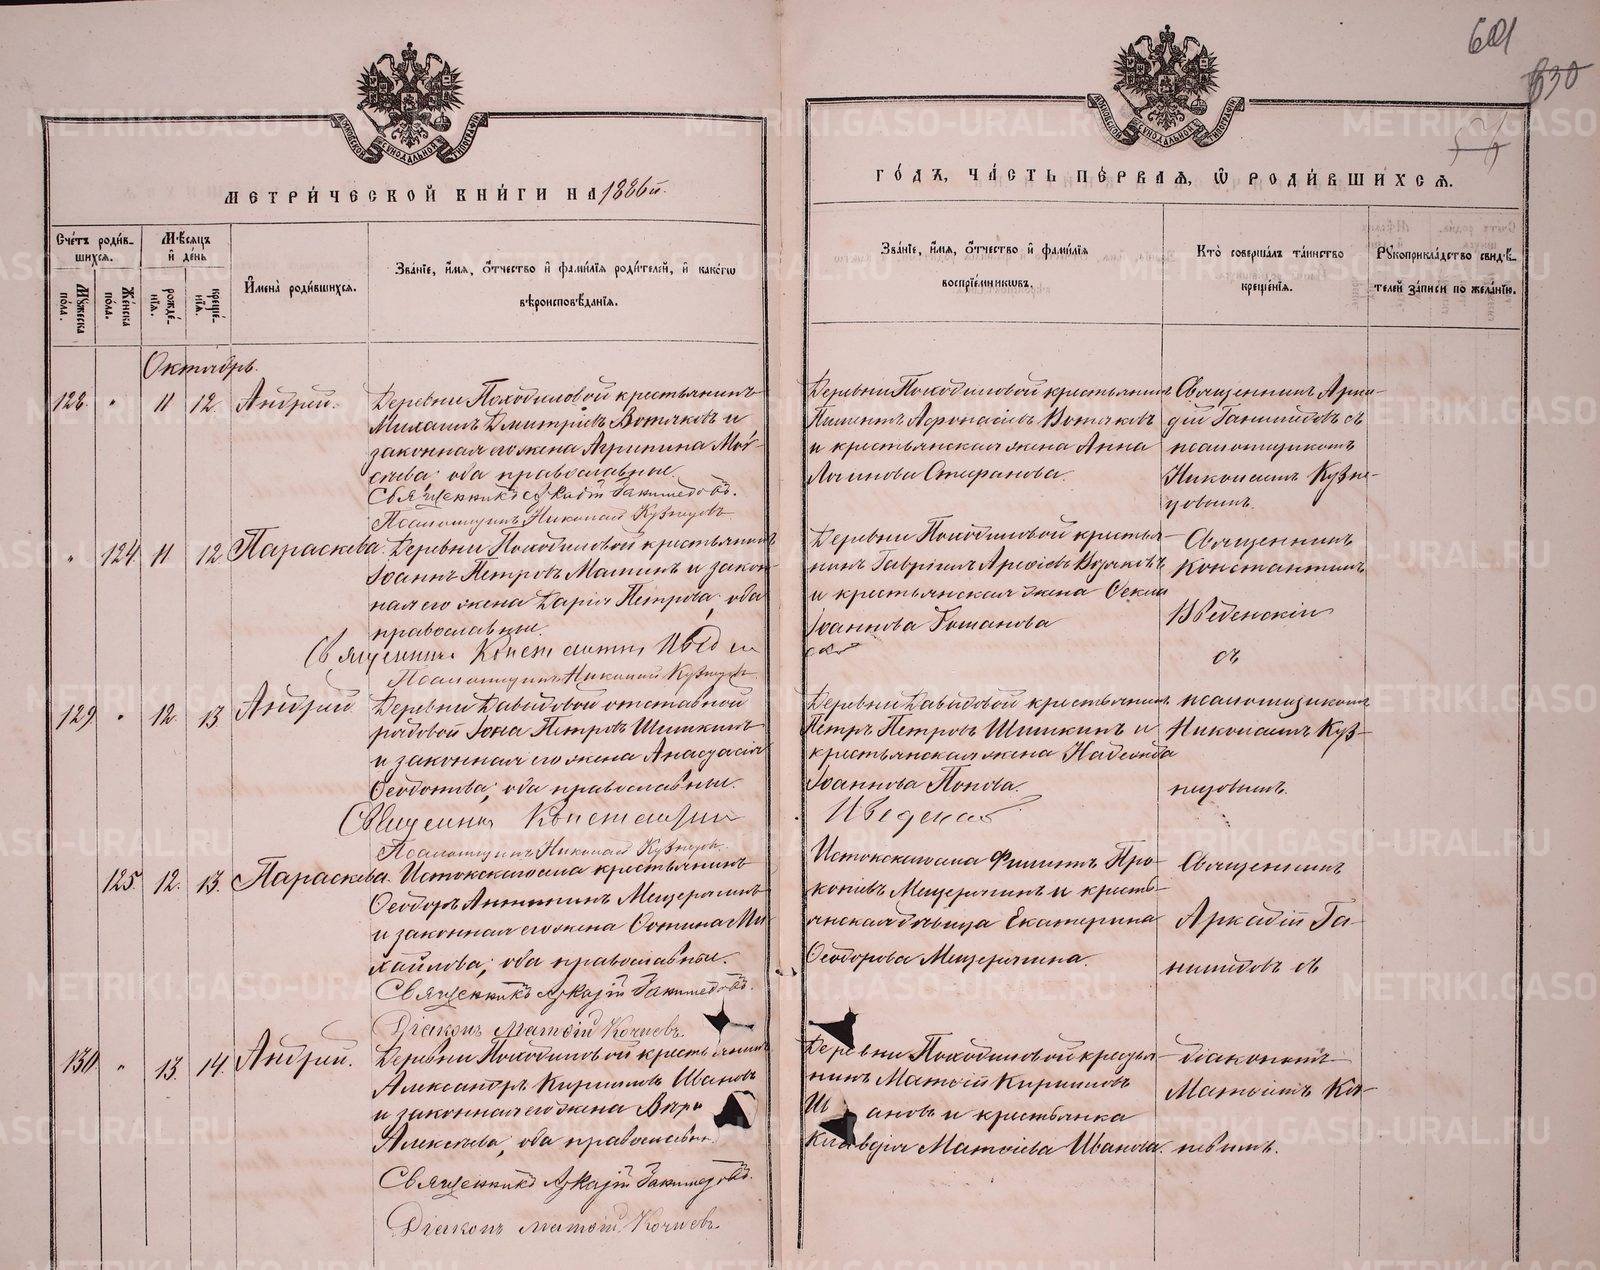 601
630
МЕТРИ́ЧЕСКОЙ КНИ́ГИ НА 1886й.
ГО́ДЪ, ЧА́СТЬ ПЕ́РВАЯ, Ѡ РОДИ́ВШИХСЯ.
Сче́тъ роди́в-
шихся.
Му́жеска по́ла.
Же́нска по́ла.
Мѣ́сяцъ
и҆ де́нь
рожде́-
нїя.
креще́-
нїя.
И҆мена̀ роди́вшихся.
Зва́нїе, и҆́мя, ѻ҆́тчество и҆ фами́лїя роди́телей, и҆ како́гѡ
вѣроисповѣ́данїя.
Зва́нїе, и҆́мя, ѻ҆́тчество и҆ фами́лїя
воспрїе́мниковъ.
Кто̀ соверша́лъ та́инство
креще́нїя.
Рукоприкла́дство свидѣ́-
телей за́писи по жела́нїю.
Октябрь.
128. " 11 12. Андрей.
Деревни Походиловой крестьянинъ
Михаилъ Дмитріевъ Вотяковъ и
законная его жена Агрипина Мой-
сеева; оба православные.
Священникъ Аркадій Ганимедовъ.
Псаломщикъ Николай Кузнецовъ.
Деревни Походиловой крестьянинъ
Пименъ Афонасіевъ Вотяковъ
и крестьянская жена Анна
Логинова Стефанова.
Священникъ Арка-
дій Ганимедовъ съ
псаломщикомъ
Николаемъ Кузне-
цовымъ.
" 124. 11 12 Параскева.
Деревни Походиловой крестьянинъ
Іоаннъ Петровъ Машинъ и закон-
ная его жена Дарія Петрова; оба
православные.
Священникъ Константинъ Введен
Псаломщикъ Николай Кузнецовъ.
Деревни Походиловой крестья-
нинъ Гавріилъ Арефіевъ Вотяковъ
и крестьянская жена Фекла
Іоаннова Томанова
Священникъ
Константинъ
Введенскій
съ
псаломщикомъ
Николаемъ Куз-
нецовымъ.
129. " 12. 13 Андрей
Деревни Давыдовой отставной
рядовой Іона Петровъ Шишкинъ
и законная его жена Анастасія
Феодотова; оба православные.
Священникъ Константинъ
Введенскій
Псаломщикъ Николай Кузнецовъ.
Деревни Давыдовой крестьянинъ
Петръ Петровъ Шишкинъ и
крестьянская жена Надежда
Іоаннова Попова.
125. 12. 13. Параскева.
Истокскаго села крестьянинъ
Феодоръ Мещерягинъ
и законная его жена Фотина Ми-
хайлова; оба православные.
Священникъ Аркадій Ганимедовъ.
Діаконъ Матѳій Кочневъ.
Истокскаго села Филиппъ Про-
копіевъ Мещерягинъ и кресть-
янская дѣвица Екатерина
Феодорова Мещерягина.
Священникъ
Аркадій Га-
нимедовъ съ
діакономъ
Матѳіемъ Коч-
невымъ.
130. " 13. 14. Андрей.
Деревни Походиловой крестьянинъ
Александръ Кириловъ Ивановъ
и законная его жена Вѣра
Алексѣева; оба православные.
Священникъ Аркадій Ганимедовъ.
Діаконъ Матѳій Кочневъ.
Деревни Походиловой крестья-
нинъ Матѳій Кириловъ
Ивановъ и крестьянка
Клавдія Матѳіева Иванова.